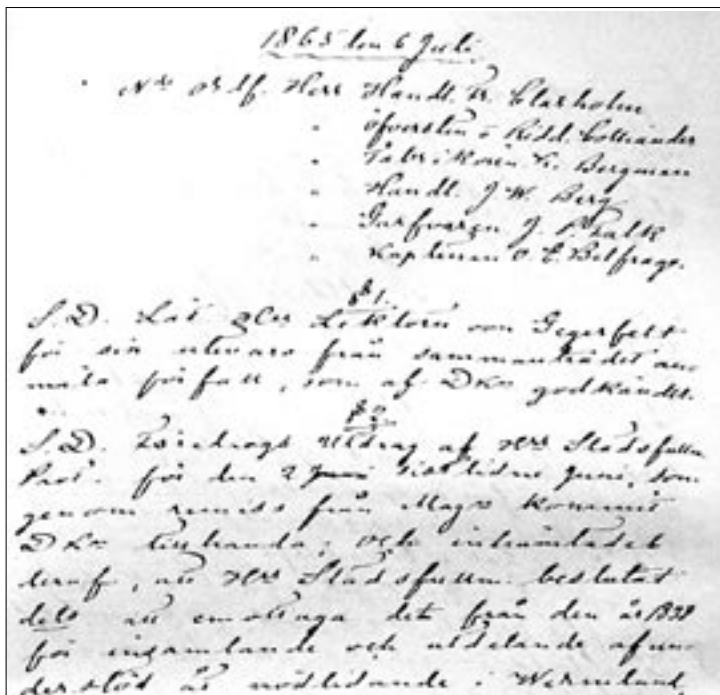 1865 den 6 Juli
Närv. Ordf. Herr Handl. Fr. Clarholm
" Öfversten o Ridd. Colliander
" Fabrikören Bergman
" Handl. J. W. Berg
" Garfvaren J. P. Falk
" Kaptenen O. E. Belfrage.
§ 1.
S.D. Lät Lektorn von Gegerfelt
för sin utevaro från sammanträdet an-
mäla förfall, som af DKn godkändes.
§ 2.
S.D. Föredrogs Utdrag af Hrr Stadsfullm
Prot. för den 2 sistlidne Juni, som
genom remiss från Mag. kommit
DKn tillhanda; och inhämtades
deraf, att Hrr Stadsfullm. beslutat
dels att emottaga det från den år 1838
för insamlande och utdelande af un-
derstöd åt nödlidande i Wermland